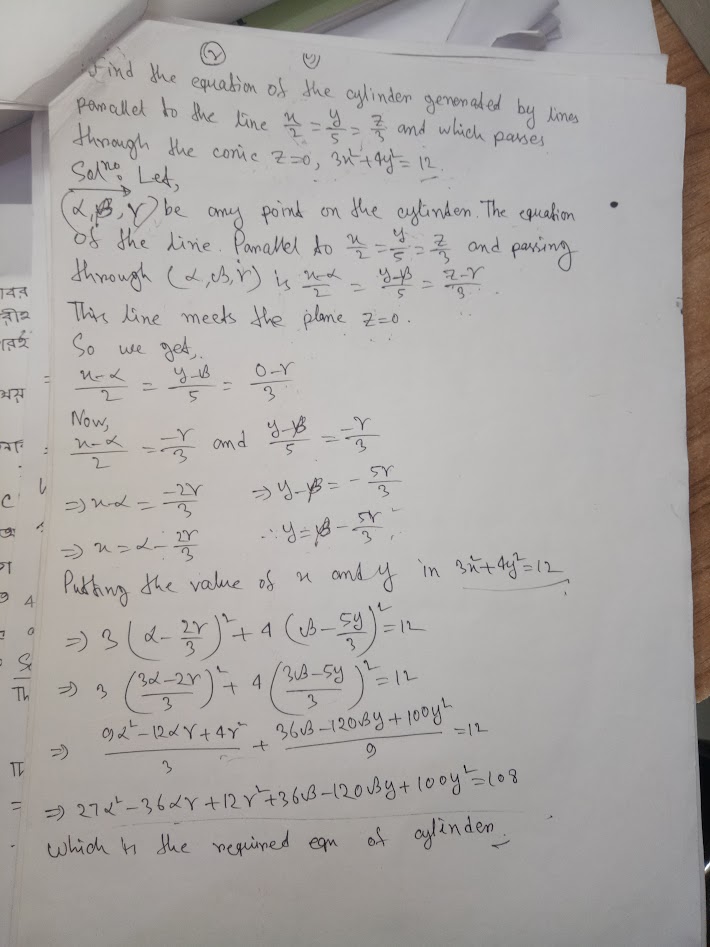 (2)
Find the equation of the cylinder generated by lines
parallel to the line x/2 = y/5 = z/3 and which passes
through the conic z=0, 3x²+4y²=12.
Solⁿ: Let,
(α, β, γ) be any point on the cylinder. The equation
of the line. Parallel to x/2 = y/5 = z/3 and passing
through (α, β, γ) is (x-α)/2 = (y-β)/5 = (z-γ)/3.
This line meets the plane z=0.
So we get,
(x-α)/2 = (y-β)/5 = (0-γ)/3
Now,
(x-α)/2 = -γ/3 and (y-β)/5 = -γ/3
⇒ x-α = -2γ/3 ⇒ y-β = -5γ/3
⇒ x = α - 2γ/3 ∴ y = β - 5γ/3
Putting the value of x and y in 3x²+4y²=12
⇒ 3(α - 2γ/3)² + 4(β - 5y/3)² = 12
⇒ 3((3α-2γ)/3)² + 4((3β-5y)/3)² = 12
⇒ (9α²-12αγ+4γ²)/3 + (36β-120βy+100y²)/9 = 12
⇒ 27α²-36αγ+12γ²+36β-120βy+100y²=108
which is the required eqn of cylinder.